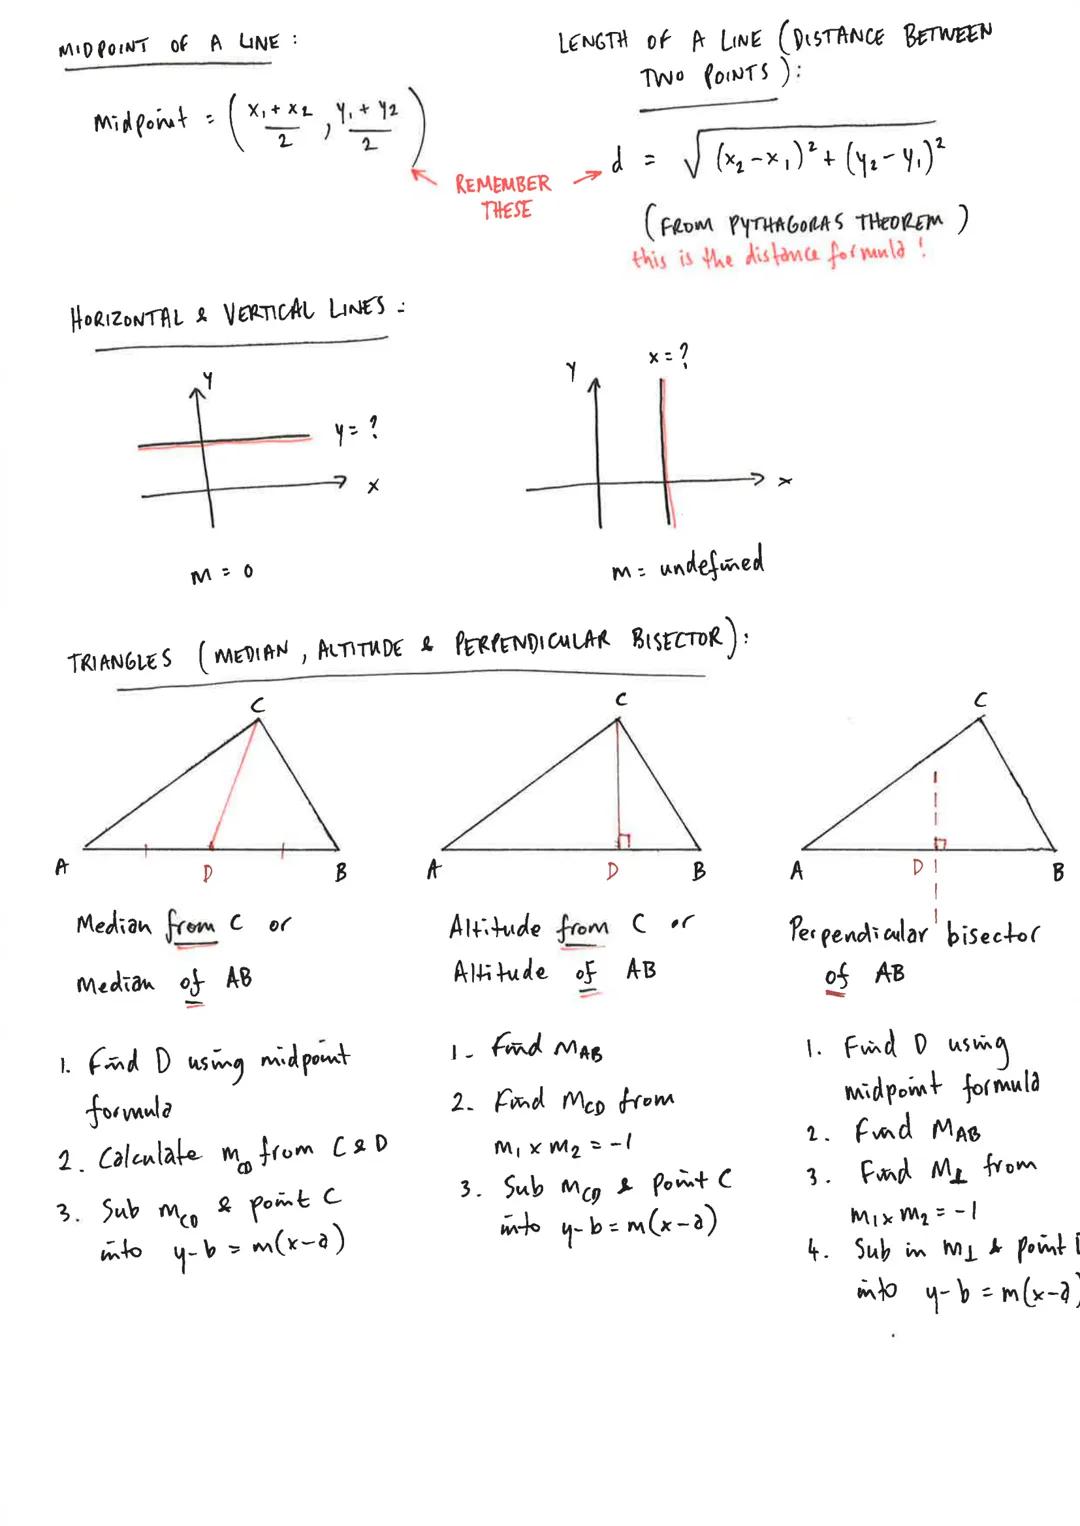 MIDPOINT OF A LINE :
Midpoint = ( x₁ + x₂ / 2 , y₁ + y₂ / 2 )
LENGTH OF A LINE (DISTANCE BETWEEN
TWO POINTS ) :
d = √ (x₂ - x₁)² + (y₂ - y₁)²
REMEMBER
THESE
(FROM PYTHAGORAS THEOREM )
this is the distance formula !
HORIZONTAL & VERTICAL LINES :
y
y = ?
x
m = 0
y
x = ?
x
m = undefined
TRIANGLES (MEDIAN , ALTITUDE & PERPENDICULAR BISECTOR) :
C
A
D
B
Median from C or
Median of AB
1. Find D using midpoint
formula
2. Calculate m_CD from C & D
3. Sub m_CD & point C
into y - b = m(x - a)
C
A
D
B
Altitude from C or
Altitude of AB
1. Find M_AB
2. Find M_CD from
m₁ x m₂ = -1
3. Sub M_CD & point C
into y - b = m(x - a)
C
A
D
B
Perpendicular bisector
of AB
1. Find D using
midpoint formula
2. Find M_AB
3. Find M⊥ from
m₁ x m₂ = -1
4. Sub in M⊥ & point D
into y - b = m(x - a)